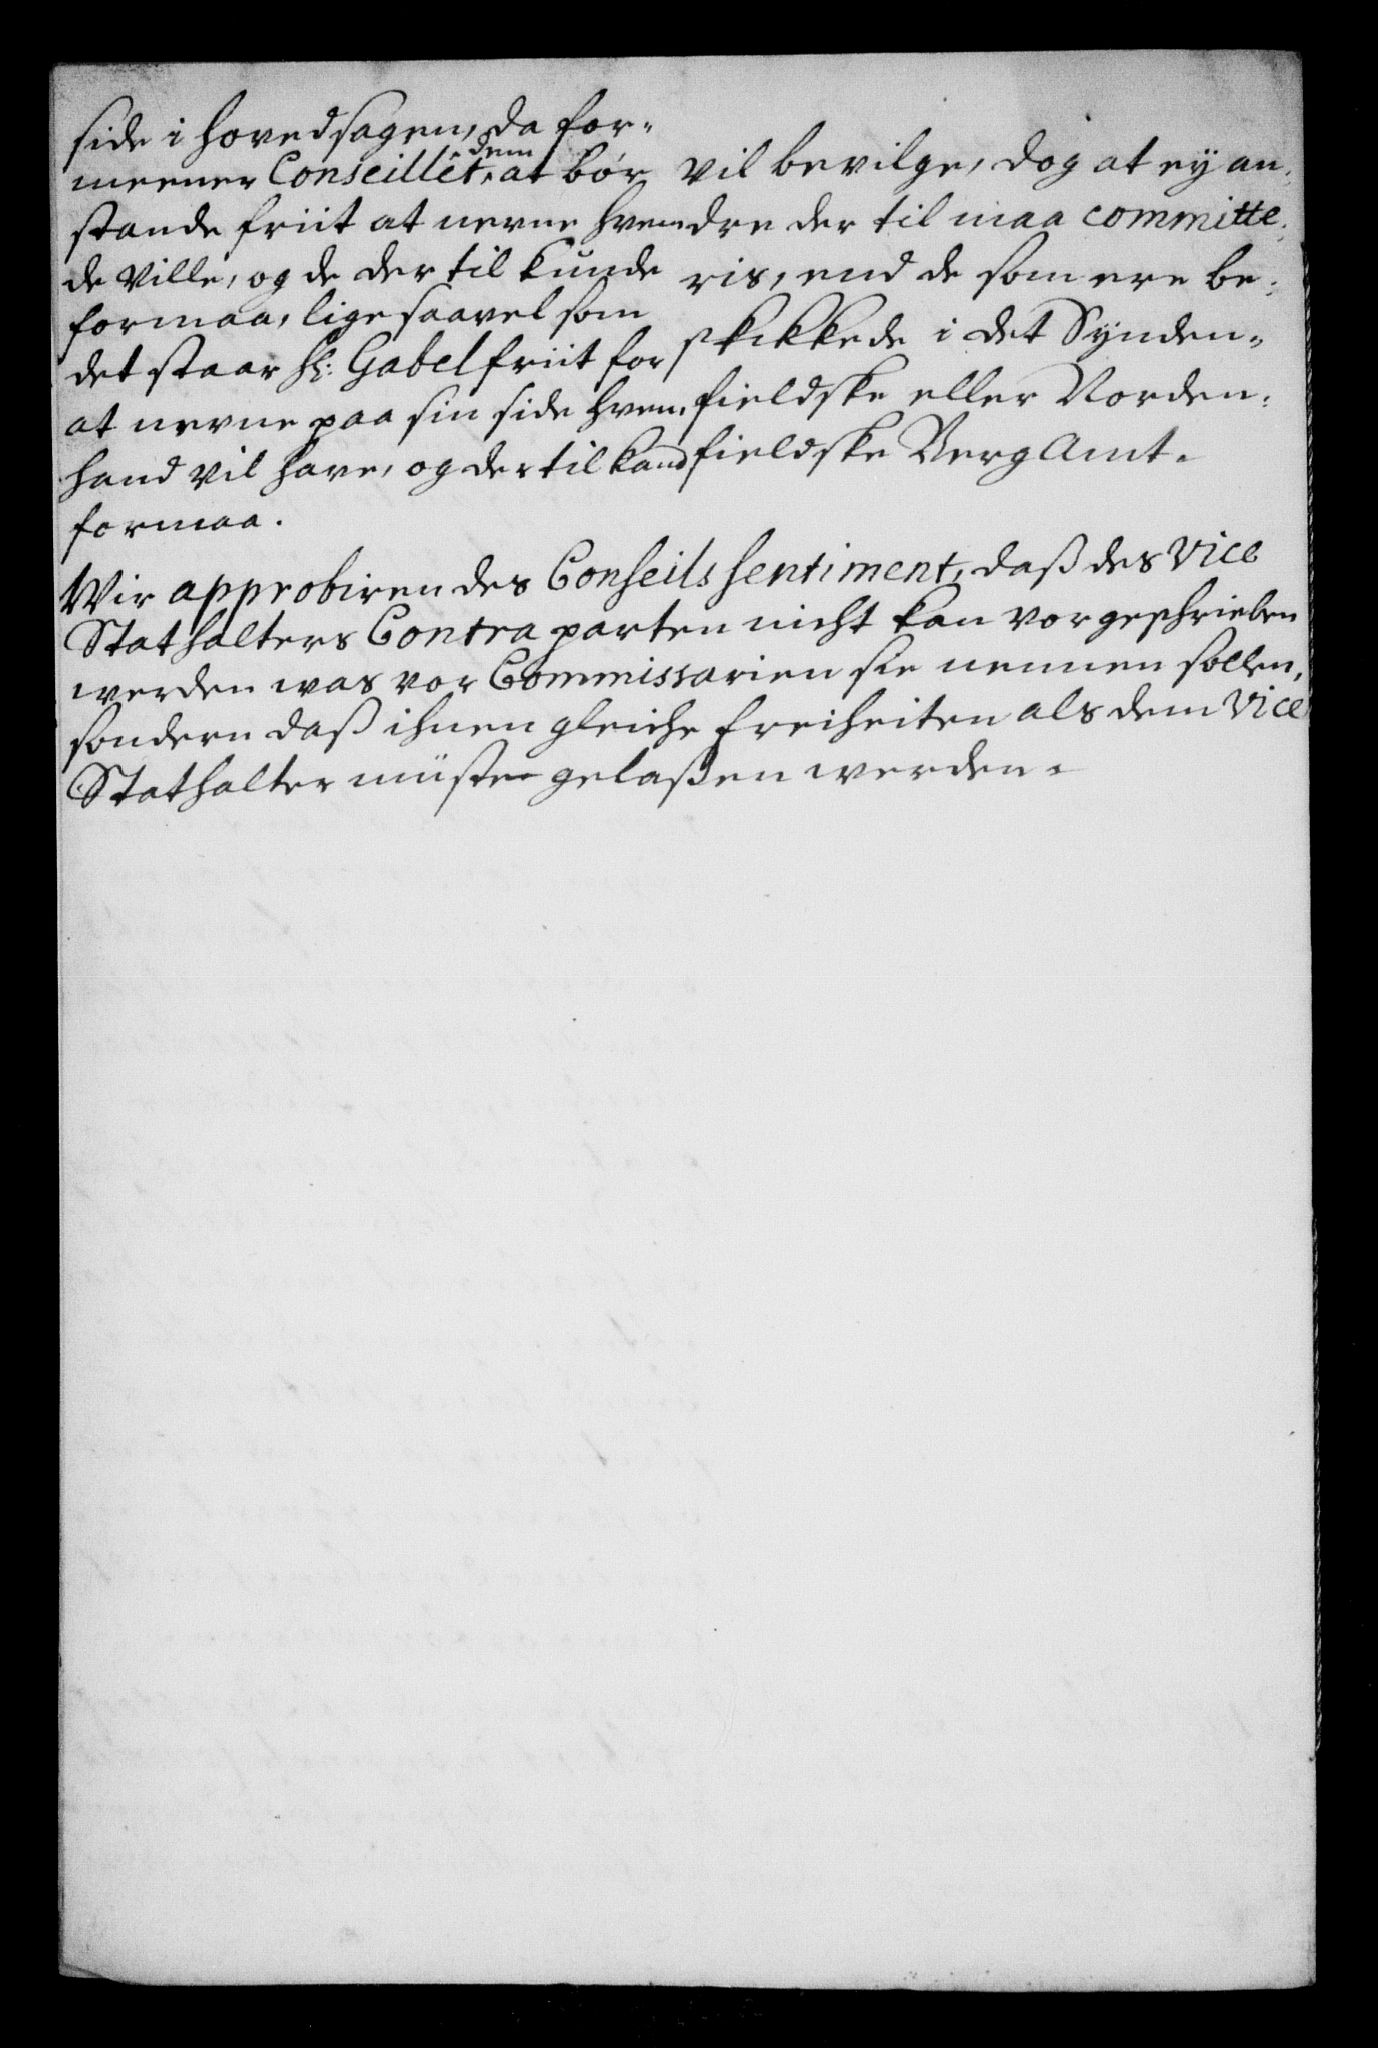 side i hovedsagen, da for-
meener Conseillet, dem at bør
stande friit at nevne hvem
de ville, og de der til kunde
formaa, lige saavel som
det staar H: Gabel friit for
at nevne paa sin side hvem
hand vil have, og der til kand
formaa.
vil bevilge, dog at ey an-
dre der til maa committe-
ris, end de som ere be-
skikkede i det Synden-
fieldske eller Norden-
fieldske Berg Amt.
Wir approbiren des Conseils sentiment, daß des Vice
Stathalters Contra parten nicht kan vorgeschrieben
werden was vor Commissarien sie nennen sollen,
sondern daß ihnen gleiche freiheiten als dem Vice
Stathalter müste gelaßen werden.